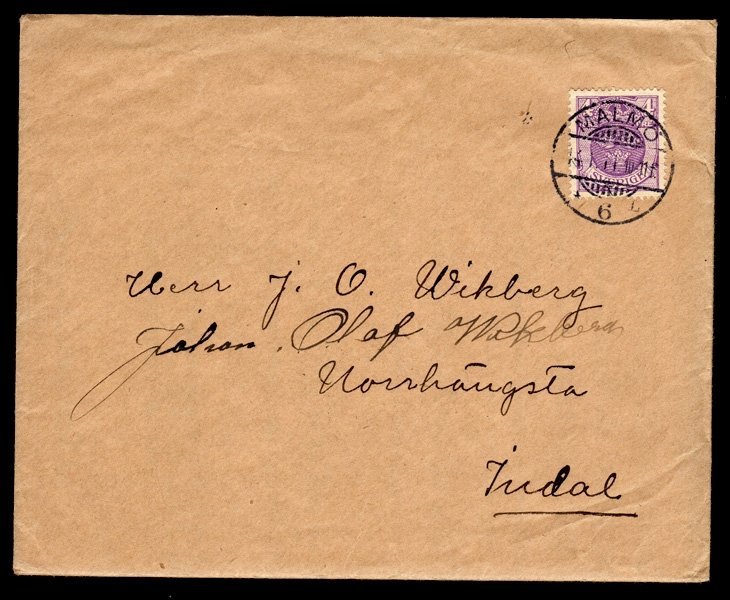 4 4
MALMÖ
SVERIGE
6 L
Herr J. O. Wikberg
Johan. Olaf Wikberg
Norrhångsta
Indal